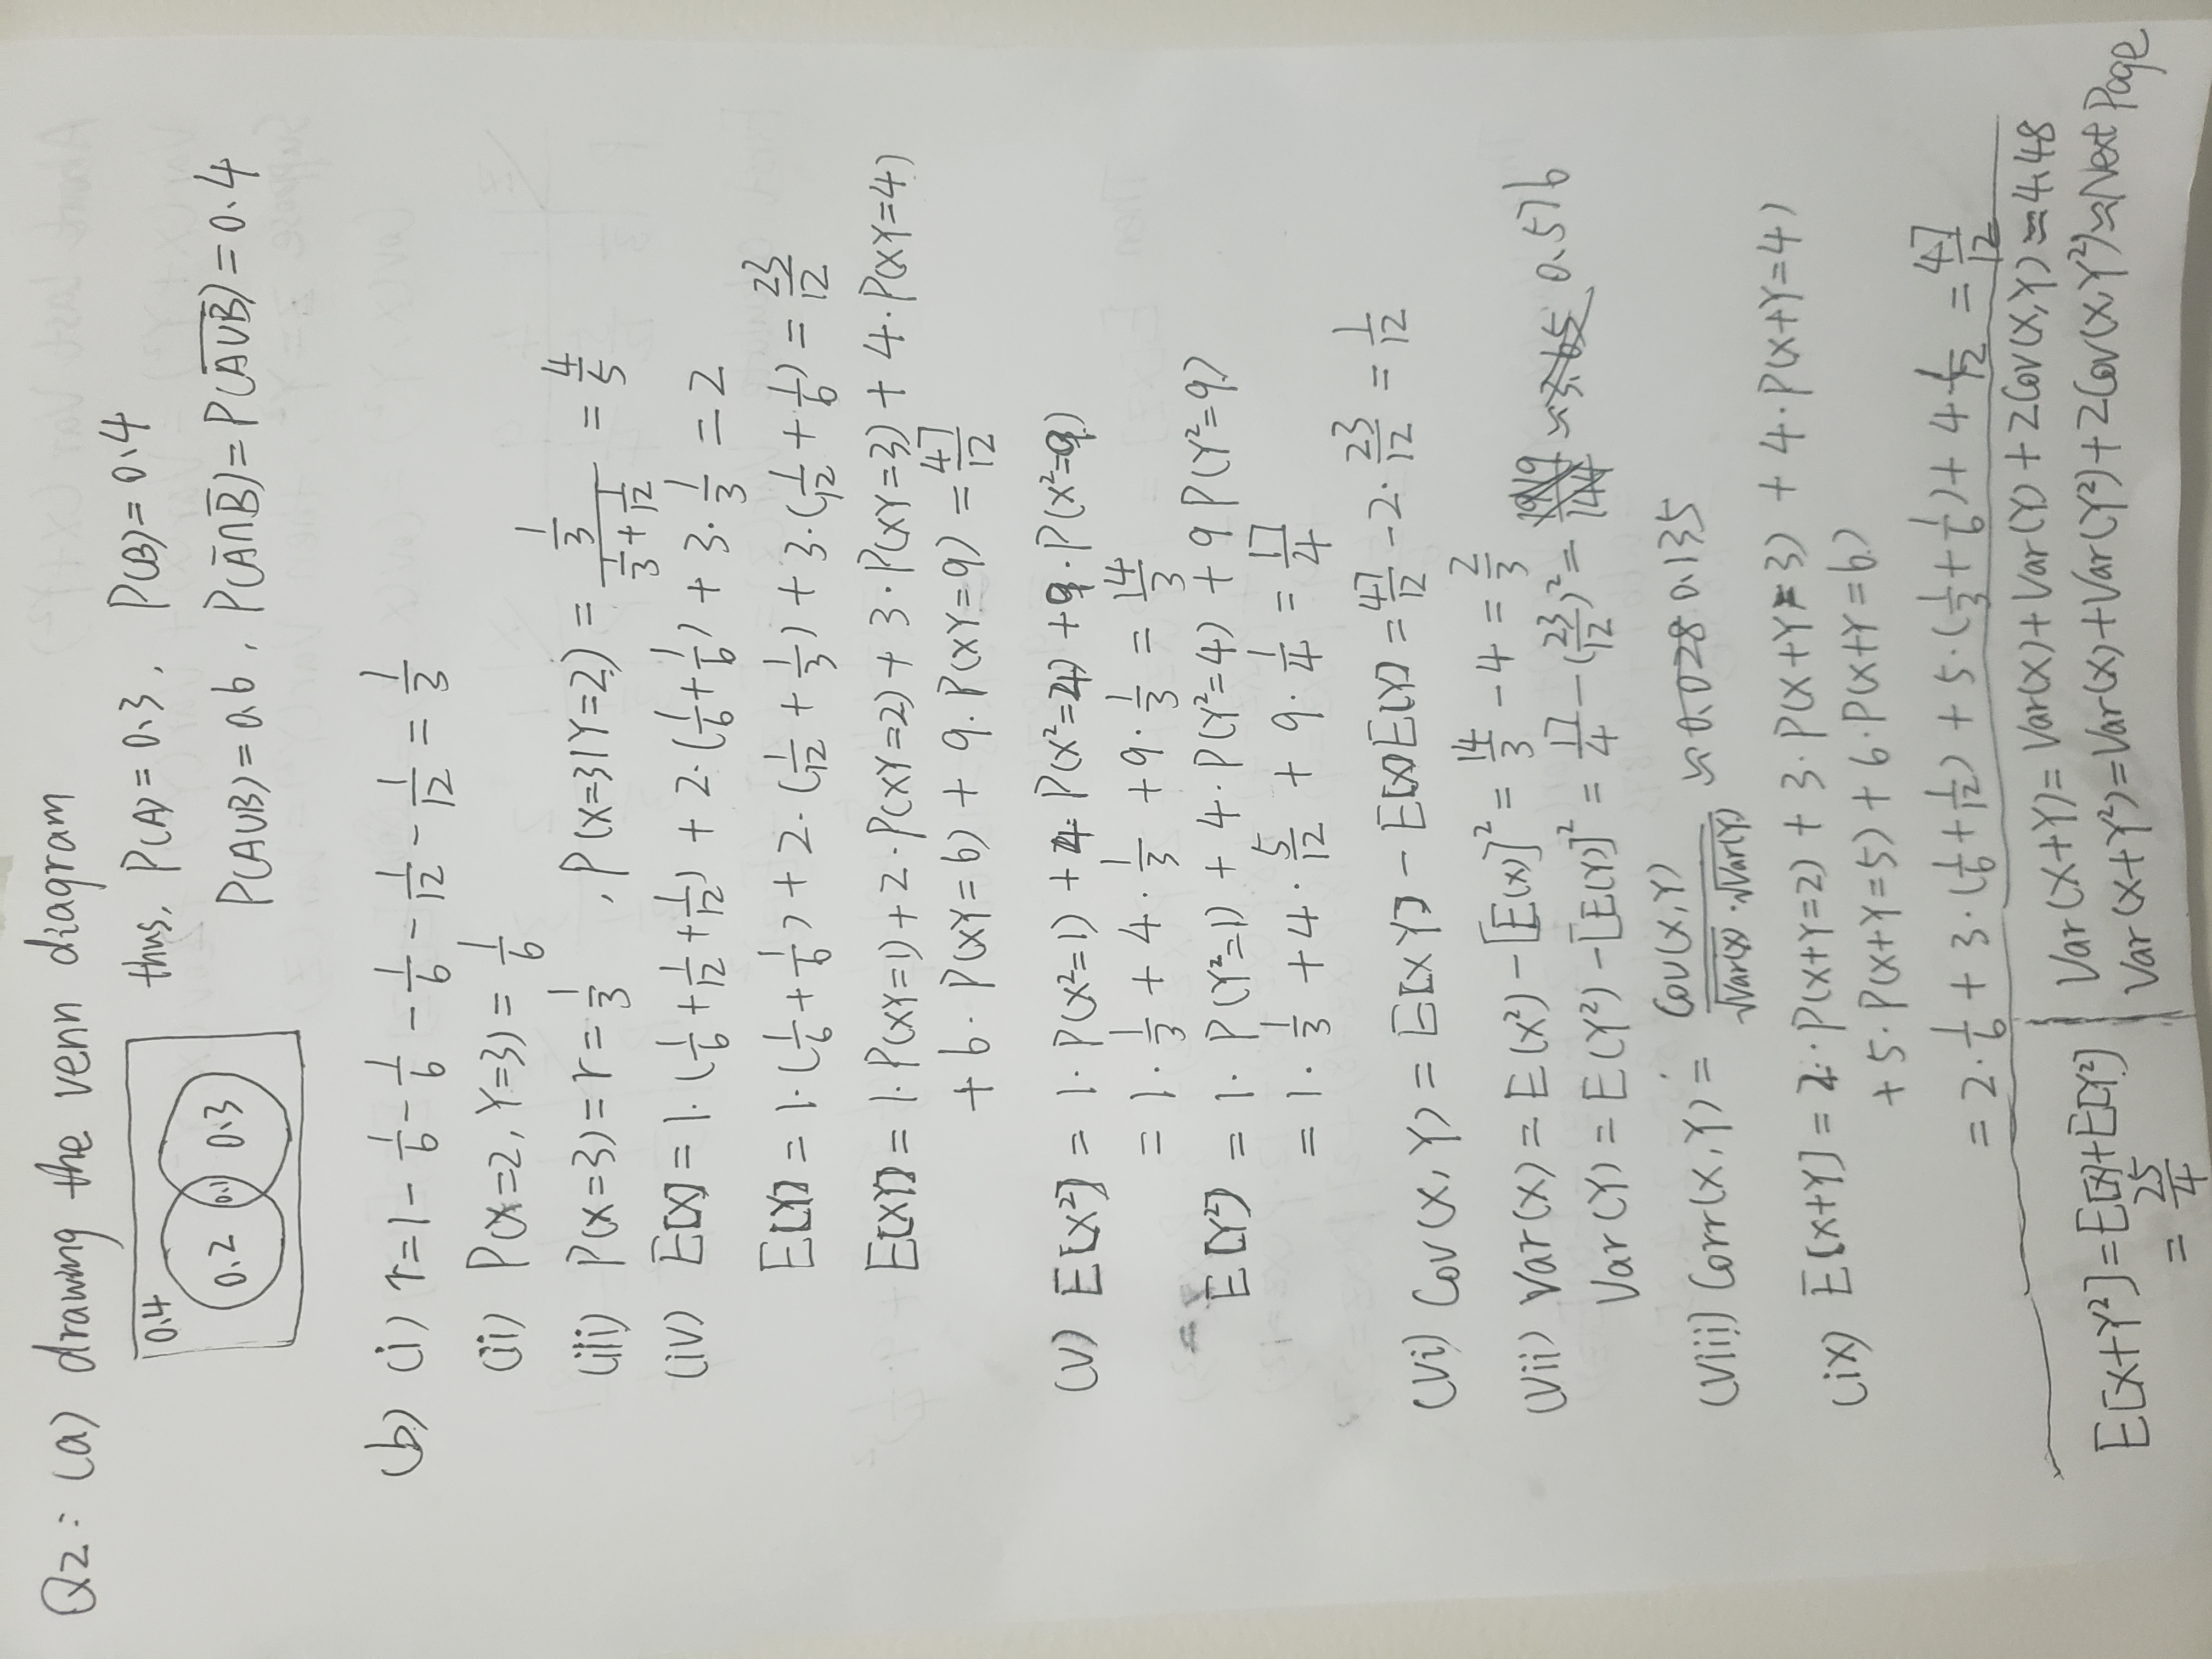 Q2: (a) drawing the venn diagram
0.4
0.2 0.1 0.3
thus, P(A) = 0.3, P(B) = 0.4
P(A∪B) = 0.6, P(A̅∩B̅) = P(\overline{A∪B}) = 0.4
(b) (i) r = 1 - 1/6 - 1/6 - 1/6 - 1/12 - 1/12 = 1/3
(ii) P(X=2, Y=3) = 1/6
(iii) P(X=3) = r = 1/3, P(X=3|Y=2) = (1/3)/(1/3 + 1/12) = 4/5
(iv) E[X] = 1·(1/6 + 1/12 + 1/12) + 2·(1/6 + 1/6) + 3·1/3 = 2
E[Y] = 1·(1/6 + 1/6) + 2·(1/12 + 1/3) + 3·(1/12 + 1/6) = 23/12
E[XY] = 1·P(XY=1) + 2·P(XY=2) + 3·P(XY=3) + 4·P(XY=4)
+ 6·P(XY=6) + 9·P(XY=9) = 47/12
(v) E[X²] = 1·P(X²=1) + 4·P(X²=4) + 9·P(X²=9)
= 1·1/3 + 4·1/3 + 9·1/3 = 14/3
E[Y²] = 1·P(Y²=1) + 4·P(Y²=4) + 9P(Y²=9)
= 1·1/3 + 4·5/12 + 9·1/4 = 17/4
(vi) Cov(X, Y) = E[XY] - E[X]E[Y] = 47/12 - 2·23/12 = 1/12
(vii) Var(X) = E(X²) - [E(X)]² = 14/3 - 4 = 2/3
Var(Y) = E(Y²) - [E(Y)]² = 17/4 - (23/12)² = ≈ 3.65 0.576
(viii) Corr(X, Y) = Cov(X,Y)/(√Var(X)·√Var(Y)) ≈ 0.028 0.135
(ix) E[X+Y] = 2·P(X+Y=2) + 3·P(X+Y=3) + 4·P(X+Y=4)
+ 5·P(X+Y=5) + 6·P(X+Y=6)
= 2·1/6 + 3·(1/6 + 1/12) + 5·(1/3 + 1/6) + 4·1/12 = 47/12
E[X+Y²] = E[X] + E[Y²]
= 25/4
Var(X+Y) = Var(X) + Var(Y) + 2Cov(X,Y) ≈ 4.48
Var(X+Y²) = Var(X) + Var(Y²) + 2Cov(X,Y²) ≈ Next Page